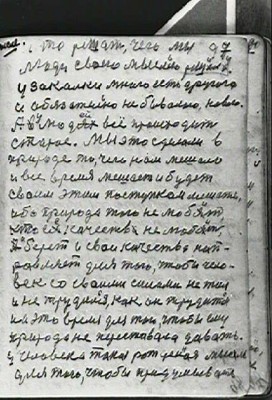 что решат, чего мы 97
Люди своею мыслию решили
у закалки много есть другого
и обязательно небывалого, нового.
А в людях всё происходит
старое. Мы это сделали в
природе то, чего нам мешало
и всё время мешает и будет
своим этим поступком мешать,
ибо природа того не любит
кто ея качества не любит,
А берет и свои качества нап-
равляет для того, чтобы чело-
век со своими силами не жил
и не трудился, как он трудится
на это время для того, чтобы ему
природа не переставала давать.
У человека такая рождённая мысль
для того, чтобы придумывал